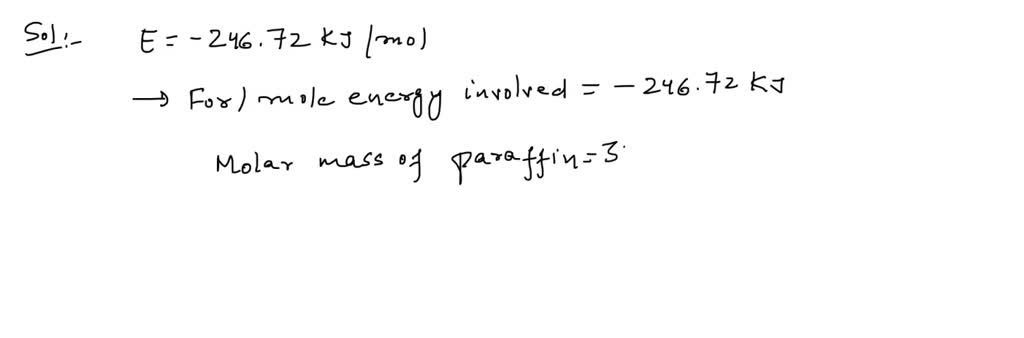 Sol:-
E = -246.72 KJ/mol
→ For 1 mole energy involved = -246.72 KJ
Molar mass of paraffin = 3